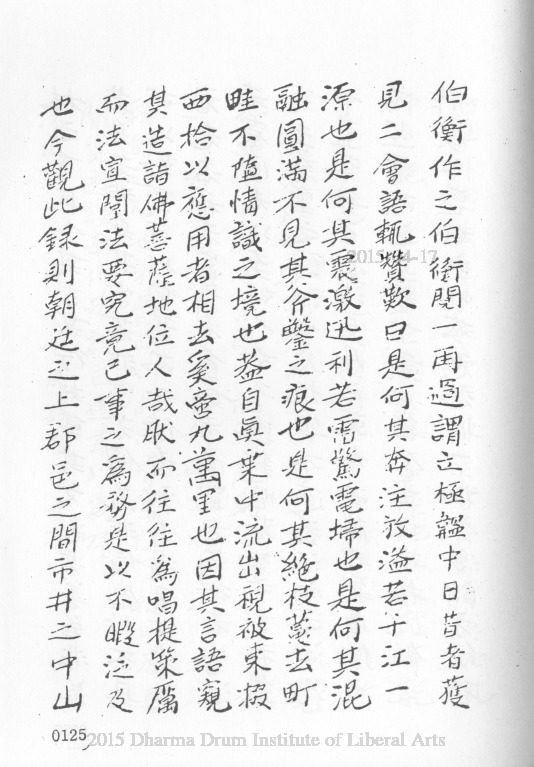 伯衡作之伯衡閱一再過謂立極韞中曰昔者獲
見二會語輒贊歎曰是何其奔注放溢若千江一
源也是何其震激迅利若雷驚電埽也是何其混
融圓滿不見其斧鑿之痕也是何其絕枝蔓去町
畦不墮情識之境也蓋自眞乘中流出視彼東掇
西拾以應用者相去奚啻九萬里也因其言語窺
其造詣佛菩薩地位人哉肰而往往爲唱提策厲
而法宜闡法要究竟己事之爲務是以不暇泛及
也今觀此録則朝廷之上郡邑之間市井之中山
2015-04-17
0125
2015 Dharma Drum Institute of Liberal Arts